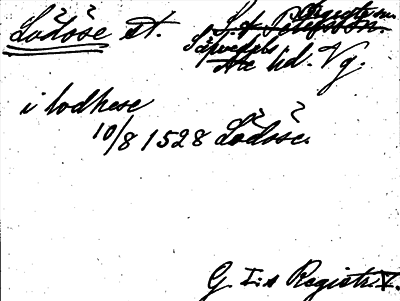 Lödöse st.
Sävedals
Ale hd. Vg.
i lodhese
10/8 1528 Lödöse.
G. I:s Registr. V.